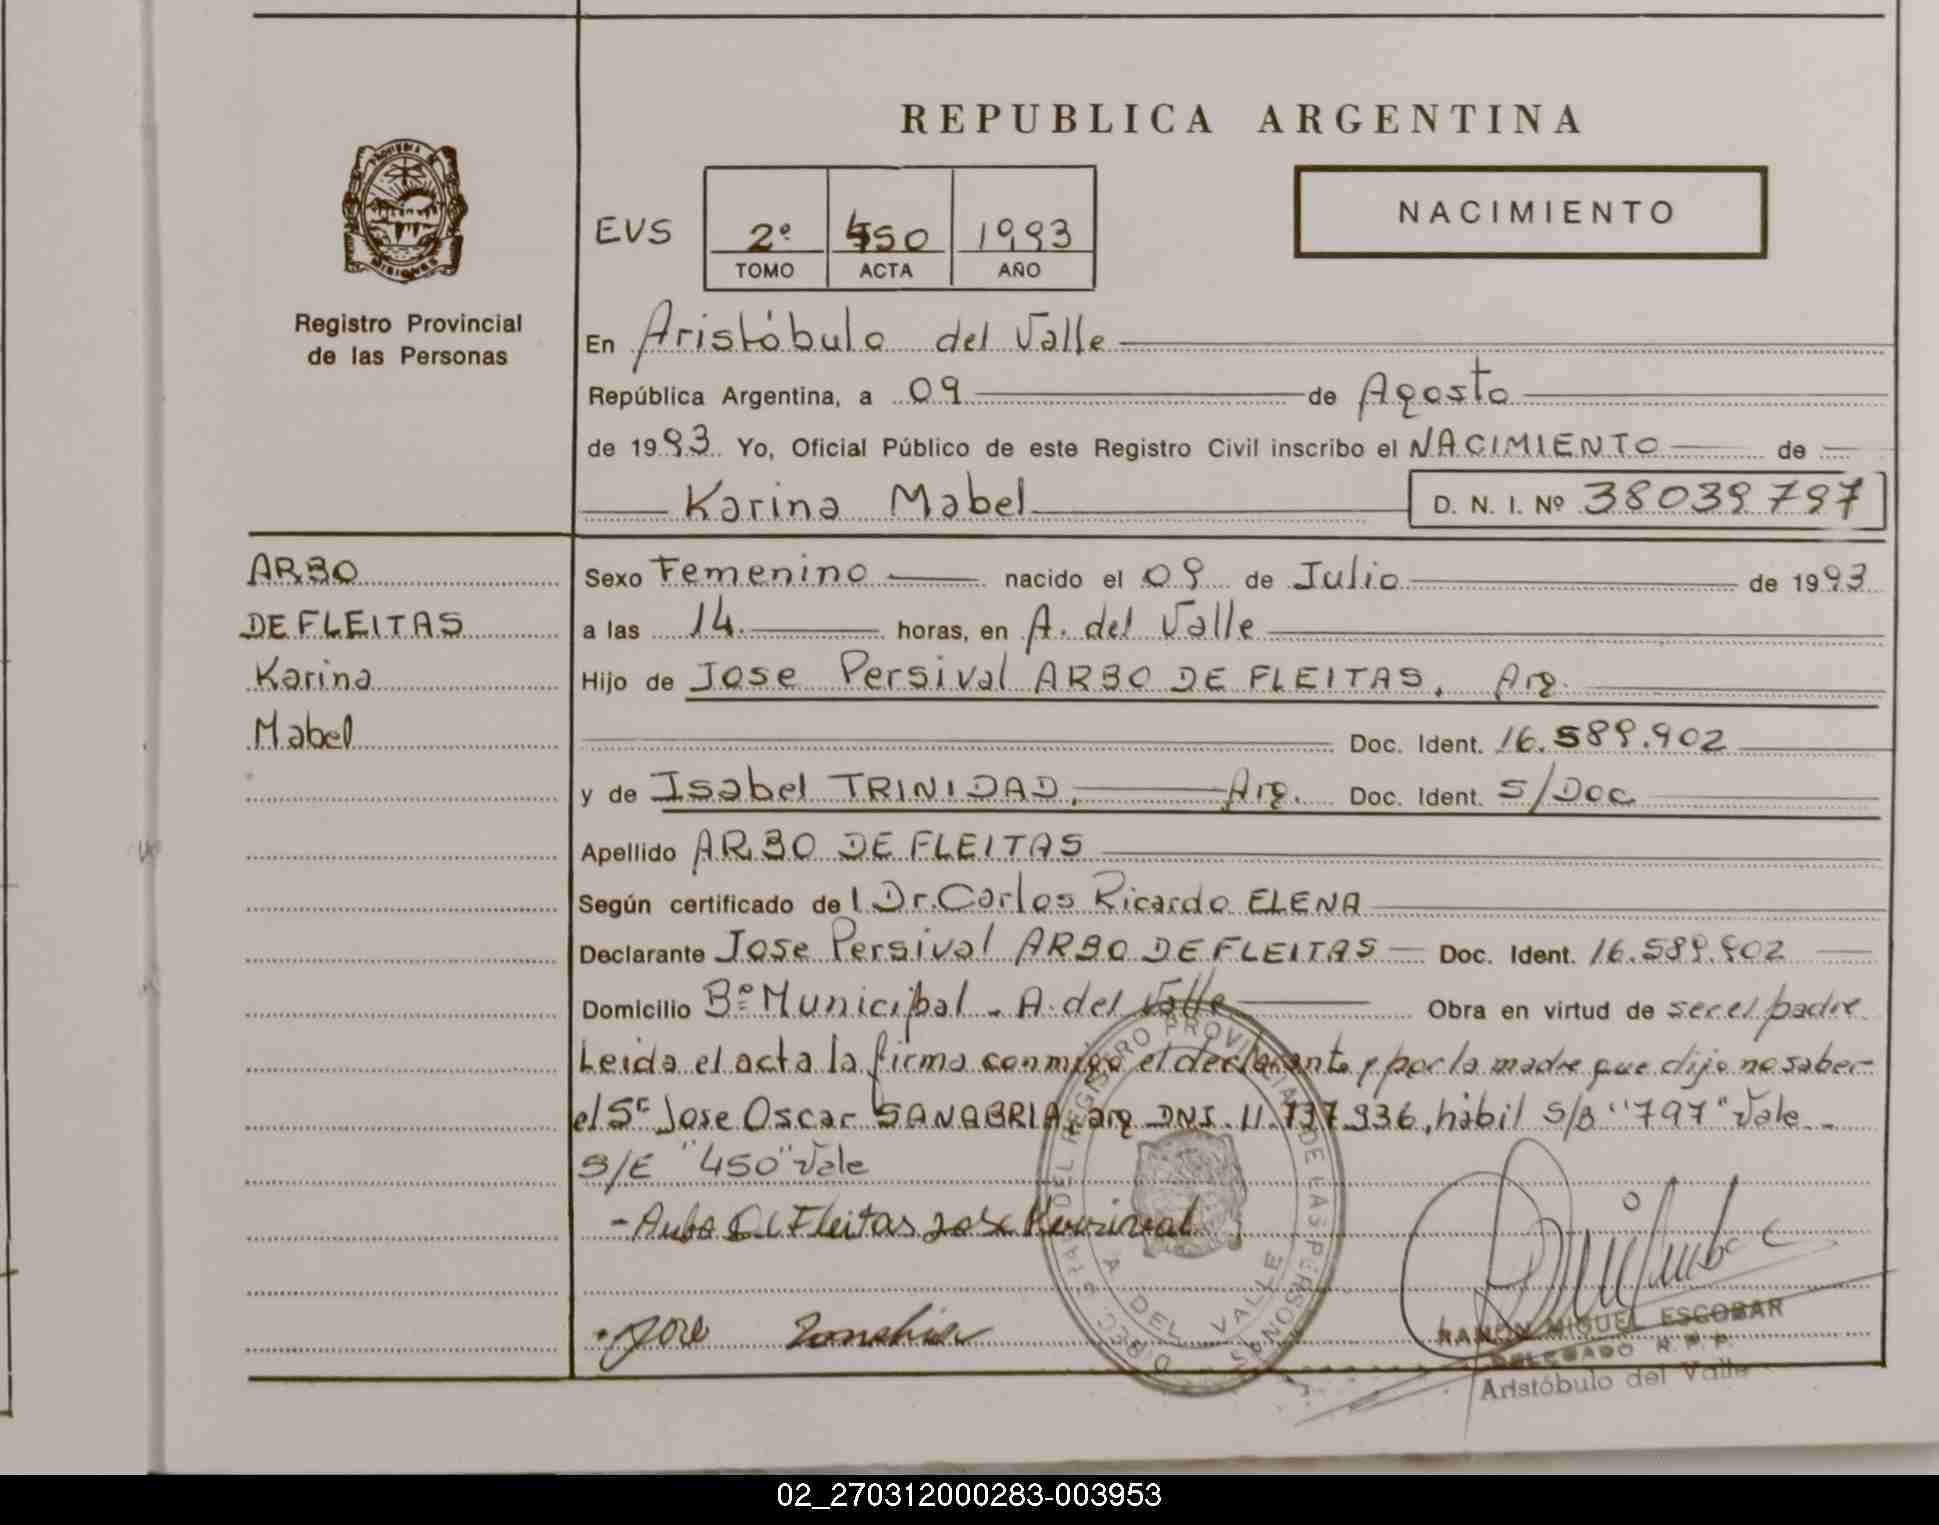 REPUBLICA ARGENTINA
PROVINCIA DE MISIONES
Registro Provincial
de las Personas
EVS
2º 450 1993
TOMO ACTA AÑO
NACIMIENTO
En Aristóbulo del Valle
República Argentina, a 09 de Agosto
de 1993 Yo, Oficial Público de este Registro Civil inscribo el NACIMIENTO de
Karina Mabel D. N. I. Nº 38039797
ARBO
DE FLEITAS
Karina
Mabel
Sexo Femenino nacido el 09 de Julio de 1993
a las 14 horas, en A. del Valle
Hijo de Jose Persival ARBO DE FLEITAS, Arg.
Doc. Ident. 16.589.902
y de Isabel TRINIDAD, Arg. Doc. Ident. S/Doc
Apellido ARBO DE FLEITAS
Según certificado de l Dr. Carlos Ricardo ELENA
Declarante Jose Persival ARBO DE FLEITAS Doc. Ident. 16.589.902
Domicilio Bº Municipal - A. del Valle Obra en virtud de ser el padre
Leida el acta la firma conmigo el declarante y por la madre que dijo no saber
el Sr Jose Oscar SANABRIA, arg DNI. 11.737.936, hábil S/B "797" Vale -
S/E "450" Vale
DIRECC. GRAL. DEL REGISTRO PROVINCIAL DE LAS PERSONAS
A. DEL VALLE
Jose
RAMON MIGUEL ESCOBAR
DELEGADO R.P.P.
Aristóbulo del Valle
02_270312000283-003953